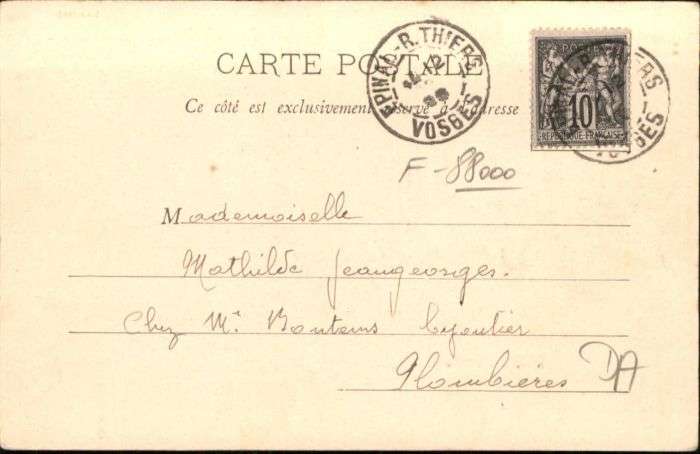 CARTE POSTALE
EPINAL-R. THIERS
VOSGES
Ce côté est exclusivement réservé à l'adresse
POSTE
10
REPUBLIQUE FRANÇAISE
VOSGES
F-88000
Mademoiselle
Mathilde Jeangeorges.
Chez Mr Bontems bijoutier
Plombières
DA